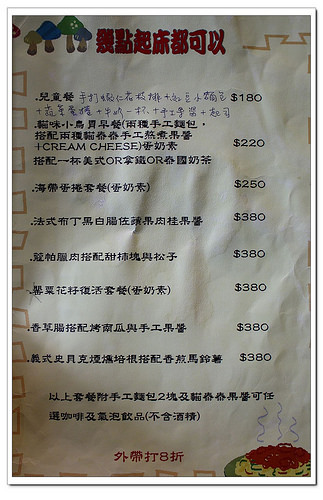 幾點起床都可以
.兒童餐 手打蝦仁花枝排+紅豆小麵包 $180
+蔬菜蛋捲+牛奶一杯+手工果醬+起司
.貓咪小鳥胃早餐(兩種手工麵包,
搭配兩種貓泰泰手工熬煮果醬
+CREAM CHEESE)蛋奶素 $220
搭配一杯美式OR拿鐵OR泰國奶茶
.海帶蛋捲套餐(蛋奶素) $250
.法式布丁黑白腸佐蘋果肉桂果醬 $380
.蘿蔔臘肉搭配甜柿塊與松子 $380
.罌粟花籽復活套餐(蛋奶素) $380
.香草腸搭配烤南瓜與手工果醬 $380
.義式史貝克煙燻培根搭配香煎馬鈴薯 $380
以上套餐附手工麵包2塊及貓泰泰果醬可任
選咖啡及氣泡飲品(不含酒精)
外帶打8折